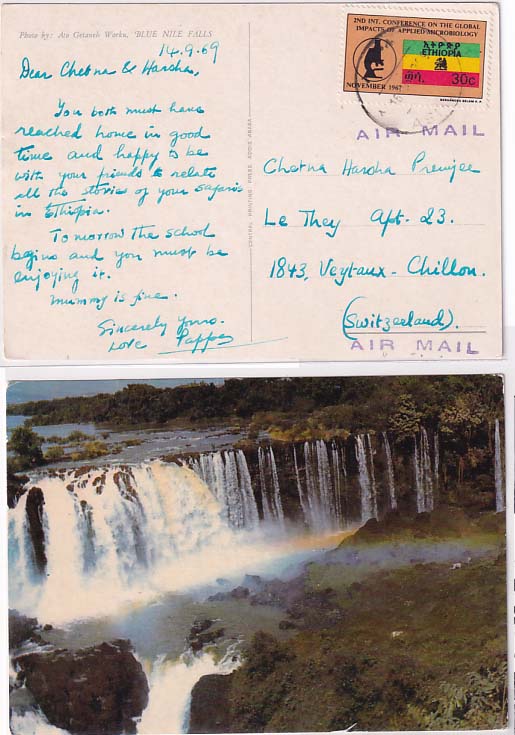 Photo by: Ato Getaneh Worku, BLUE NILE FALLS
14.9.69
Dear Chetna & Harsha,
You both must have
reached home in good
time and happy to be
with your friends to relate
all the stories of your safaris
in Ethiopia.
Tomorrow the school
begins and you must be
enjoying it.
Mummy is fine.
Sincerely Yours.
Love Pappa
CENTRAL PRINTING PRESS ADDIS ABABA
2ND INT. CONFERENCE ON THE GLOBAL
IMPACTS OF APPLIED MICROBIOLOGY
ኢትዮጵያ
ETHIOPIA
30c
NOVEMBER 1967
AIR MAIL
Chetna Harsha Premjee
Le They Apt. 23.
1843, Veytaux - Chillon.
(Switzerland).
AIR MAIL